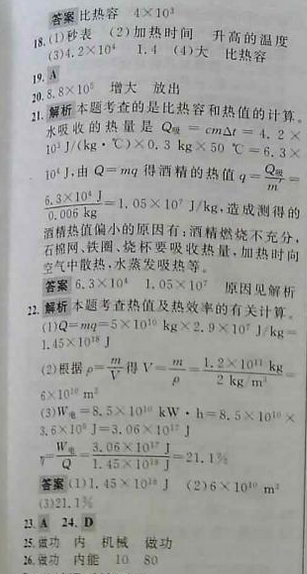 答案 比热容 4×10³
18. (1)秒表 (2)加热时间 升高的温度
(3)4.2×10⁴ 1.4 (4)大 比热容
19. A
20. 8.8×10⁵ 增大 放出
21. 解析 本题考查的是比热容和热值的计算。
水吸收的热量是 Q吸 = cmΔt = 4.2×
10³ J/(kg·℃)×0.3 kg×50 ℃=6.3×
10⁴ J,由 Q=mq 得酒精的热值 q=Q吸/m=
6.3×10⁴ J/0.006 kg=1.05×10⁷ J/kg,造成测得的
酒精热值偏小的原因有:酒精燃烧不充分,
石棉网、铁圈、烧杯要吸收热量,加热时向
空气中散热,水蒸发吸热等。
答案 6.3×10⁴ 1.05×10⁷ 原因见解析
22. 解析 本题考查热值及热效率的有关计算。
(1)Q=mq=5×10¹⁰ kg×2.9×10⁷ J/kg=
1.45×10¹⁸ J
(2)根据 ρ=m/V 得 V=m/ρ=1.2×10¹¹ kg/2 kg/m³=
6×10¹⁰ m³
(3)W电=8.5×10¹⁰ kW·h=8.5×10¹⁰×
3.6×10⁶ J=3.06×10¹⁷ J
η=W电/Q=3.06×10¹⁷ J/1.45×10¹⁸ J=21.1%
答案 (1)1.45×10¹⁸ J (2)6×10¹⁰ m³
(3)21.1%
23. A 24. D
25. 做功 内 机械 做功
26. 做功 内能 10 80